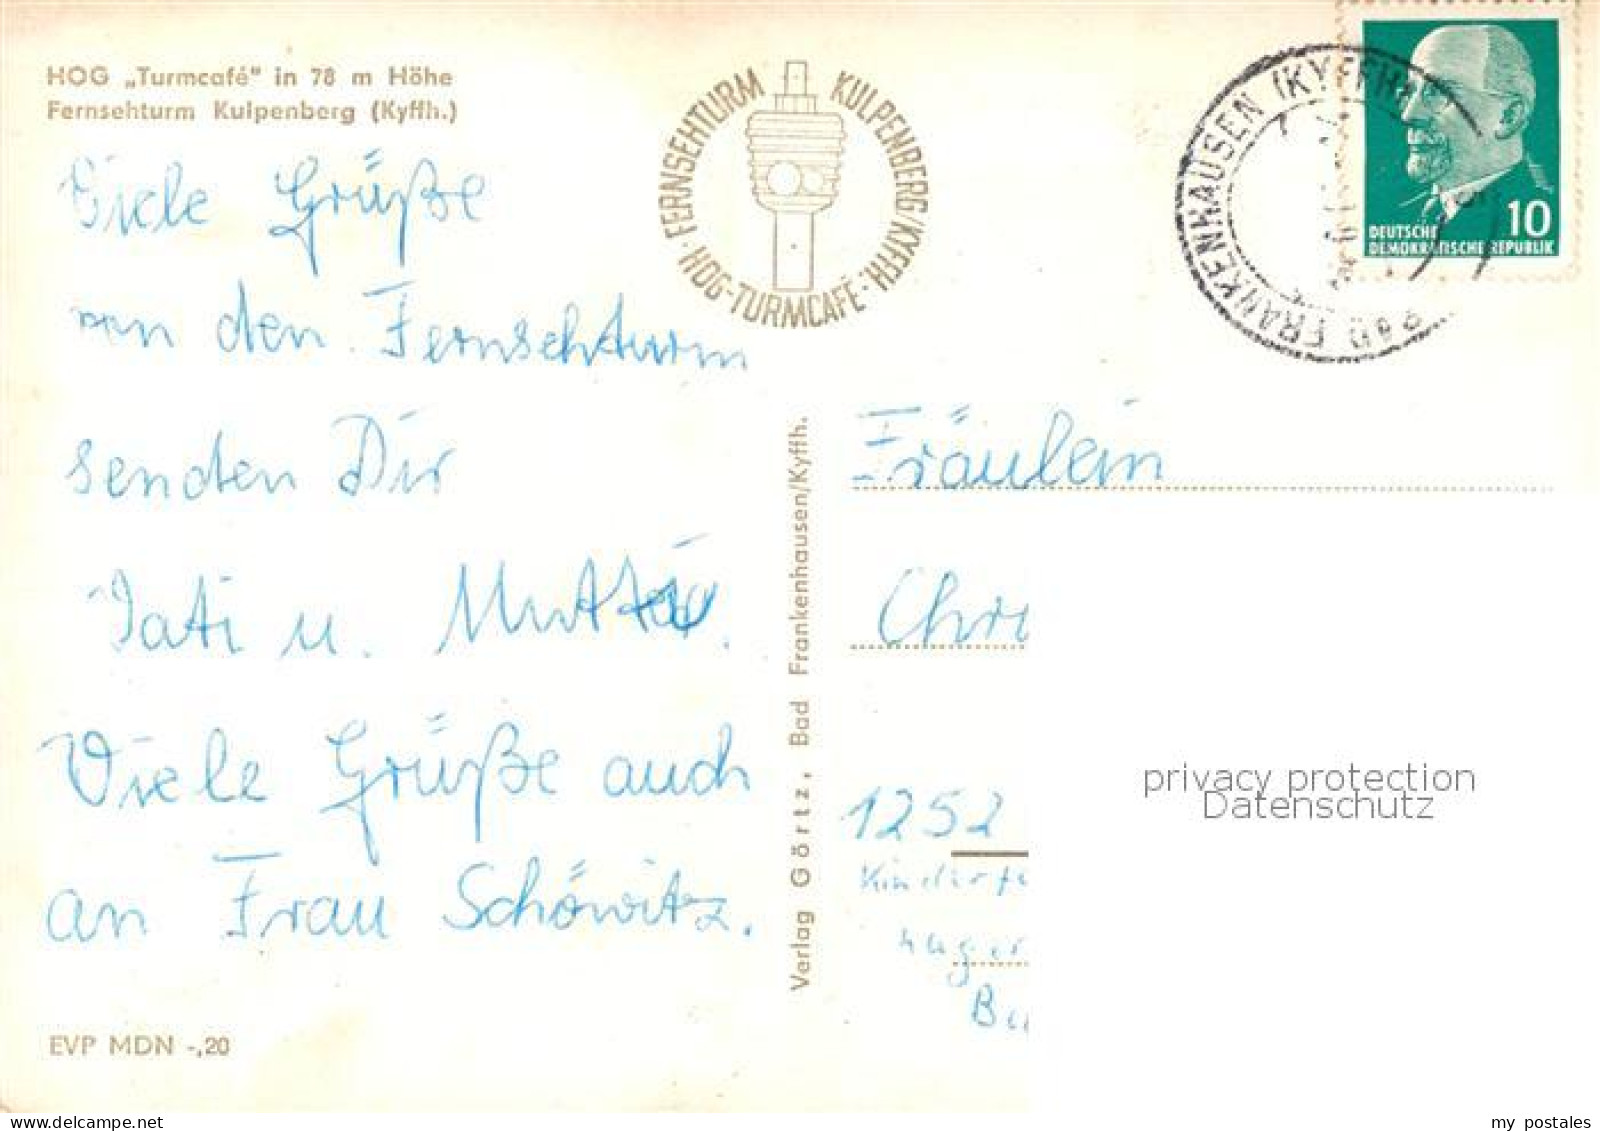 HOG „Turmcafé" in 78 m Höhe
Fernsehturm Kulpenberg (Kyffh.)
· FERNSEHTURM KULPENBERG/KYFFH. · HOG-TURMCAFÉ
BAD FRANKENHAUSEN (KYFFH)
10
DEUTSCHE
DEMOKRATISCHE REPUBLIK
Viele Grüße
von den Fernsehturm
senden Dir
u.
Viele Grüße auch
an Frau Schöwitz.
EVP MDN -,20
Verlag Görtz, Bad Frankenhausen/Kyffh.
Fräulein
Chri
1252
Kinderfe
lager
Bu
privacy protection
Datenschutz
my postales